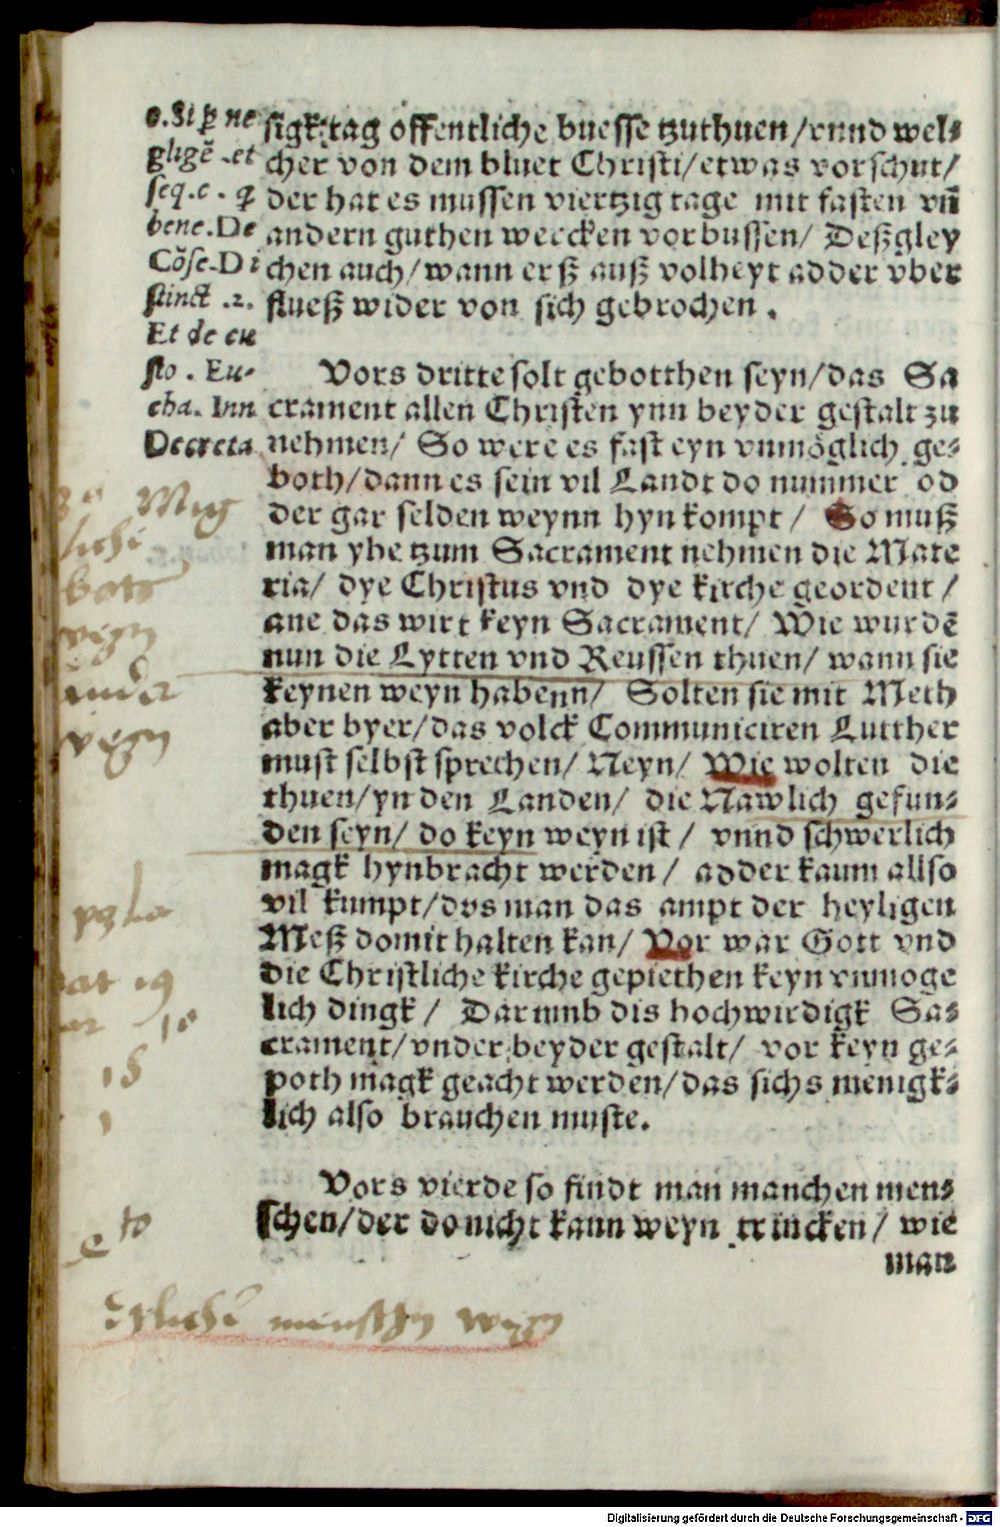 c. Si ꝑ ne
gligẽ .et
seq.c. ꝗ
bene.De
Cõse.Di
stinct .2.
Et de cu
sto . Eu-
cha. Inn
Decreta
sigk:tag offentliche buesse tzuthuen/vnnd wel⸗
cher von dem bluet Christi/etwas vorschut/
der hat es mussen viertzig tage mit fasten vñ
andern guthen wercken vorbussen/ Deßgley
chen auch/wann erß auß volheyt adder vber
flueß wider von sich gebrochen .
Vors dritte solt gebotthen seyn/das Sa
crament allen Christen ynn beyder gestalt zu
nehmen/ So were es fast eyn vnmöglich ge⸗
both/dann es sein vil Landt do nummer od
der gar selden weynn hyn kompt / So muß
man yhe tzum Sacrament nehmen die Mate
ria/ dye Christus vnd dye kirche geordent /
ane das wirt keyn Sacrament/ Wie wurdẽ
nun die Lytten vnd Reussen thuen/ wann sie
keynen weyn habenn/ Solten sie mit Meth
aber byer/das volck Communiciren Lutther
must selbst sprechen/ Neyn/ Wie wolten die
thuen/yn den Landen/ die Nawlich gefun⸗
den seyn/ do keyn weyn ist / vnnd schwerlich
magk hynbracht werden/ adder kaum allso
vil kumpt/dvs man das ampt der heyligen
Meß domit halten kan/ Vor war Gott vnd
die Christliche kirche gepiethen keyn vnmoge
lich dingk / Darumb dis hochwirdigk Sa⸗
crament/vnder beyder gestalt/ vor keyn ge⸗
poth magk geacht werden/das sichs menigk⸗
lich also brauchen muste.
Vors vierde so findt man manchen men⸗
schen/der do nicht kann weyn trincken/ wie
man
Digitalisierung gefördert durch die Deutsche Forschungsgemeinschaft - DFG